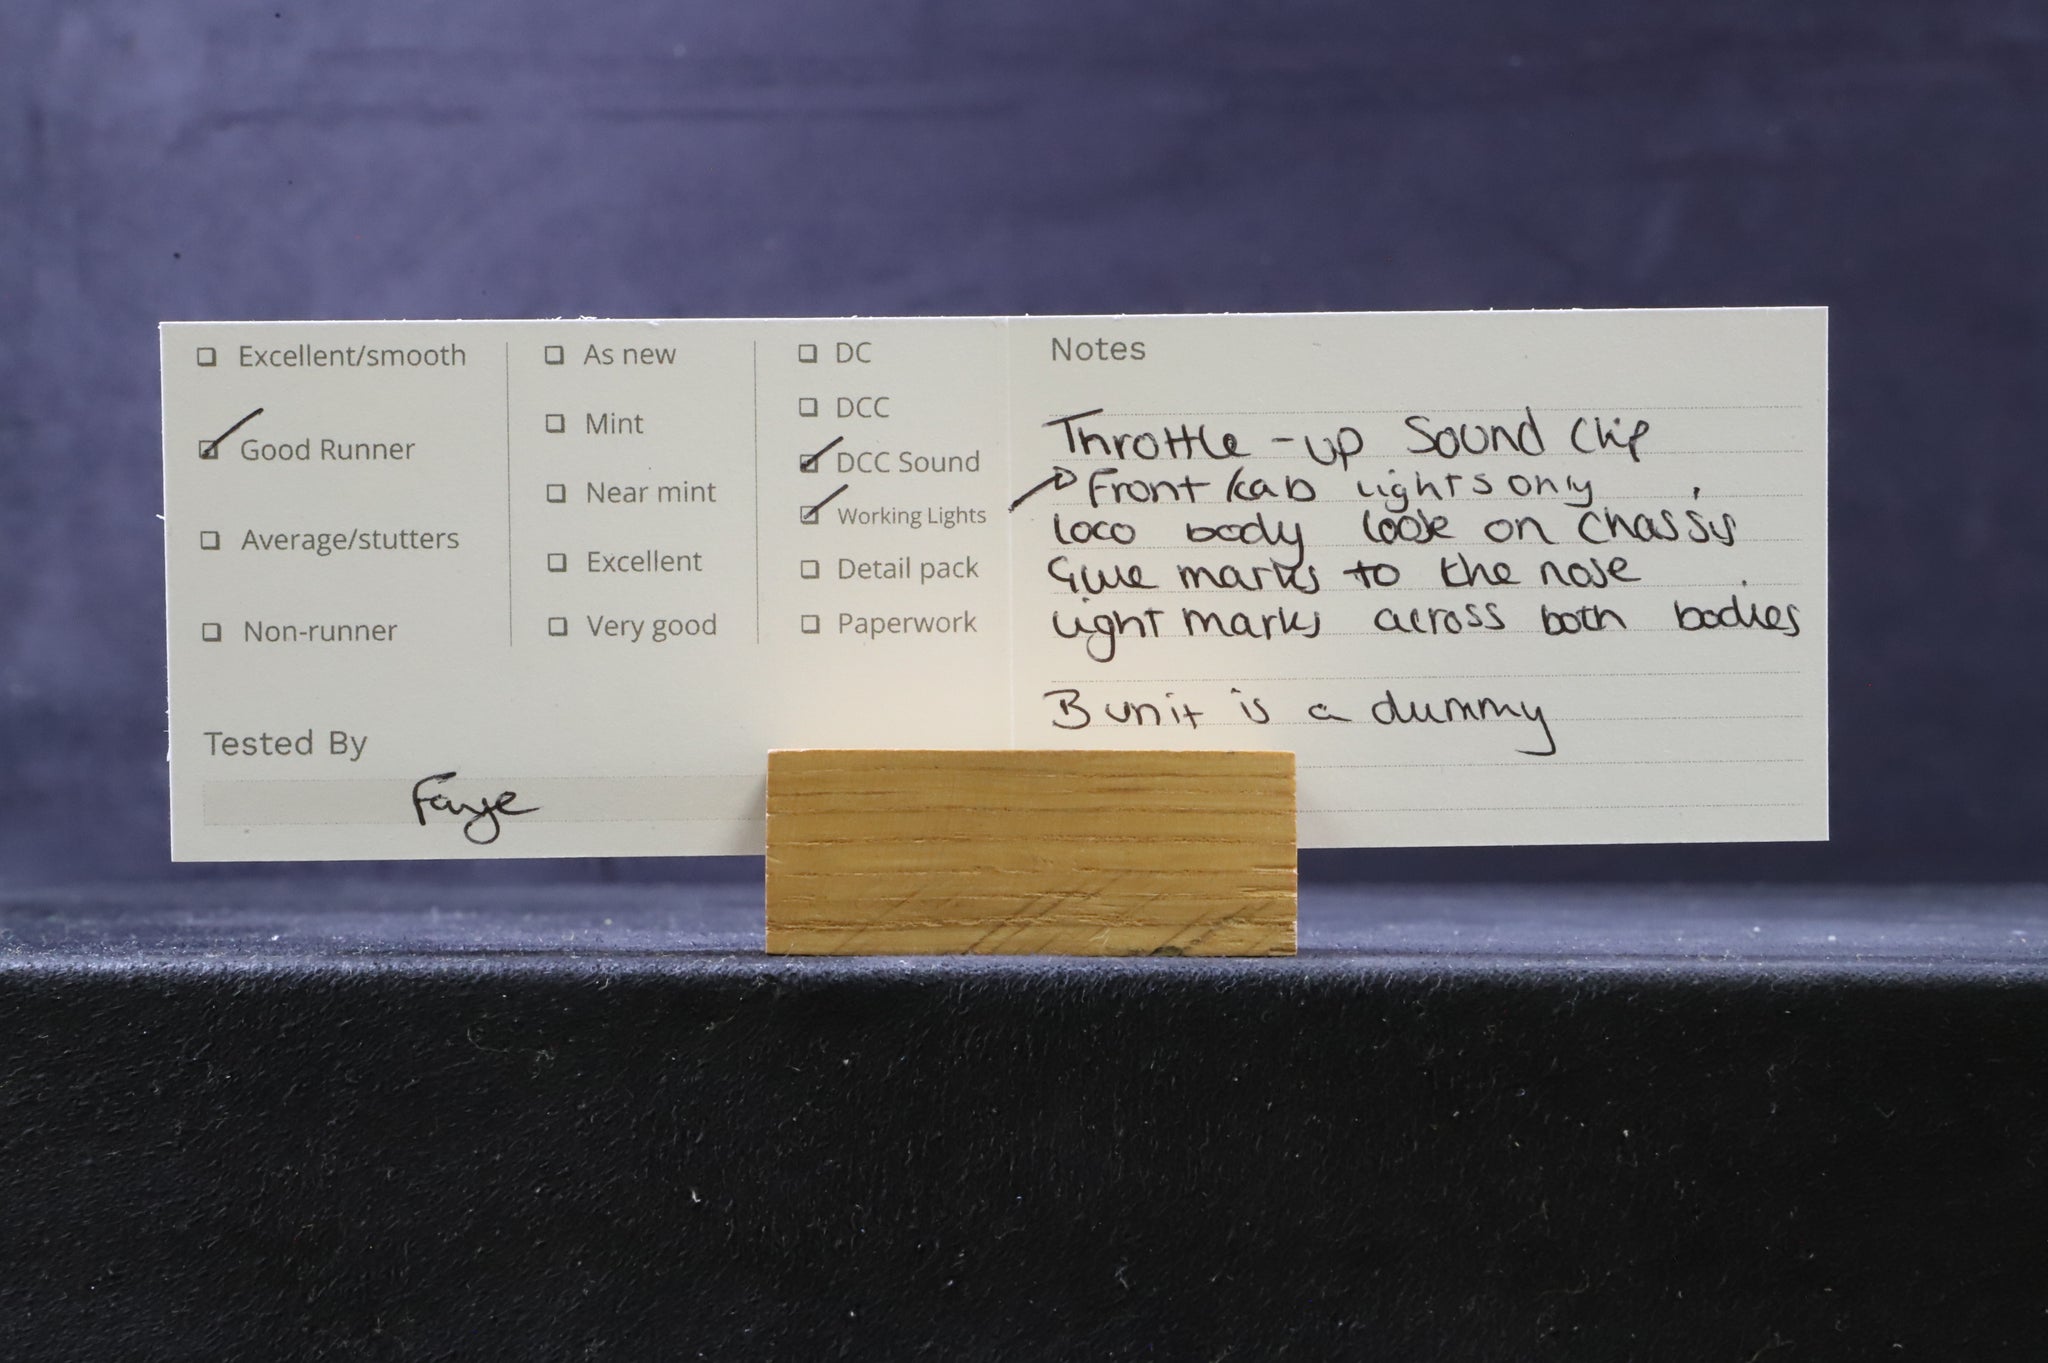 Excellent/smooth
Good Runner
Average/stutters
Non-runner
As new
Mint
Near mint
Excellent
Very good
DC
DCC
DCC Sound
Working Lights
Detail pack
Paperwork
Tested By
Faye
Notes
Throttle-up Sound Clip
Front/cab lights only
loco body loose on chassis
Glue marks to the nose
Light marks across both bodies
B unit is a dummy